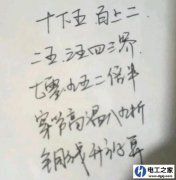 十下五 百上二
二五三五四三界
七零九五二倍半
穿管高温八九折
铜线升级算
电工之家